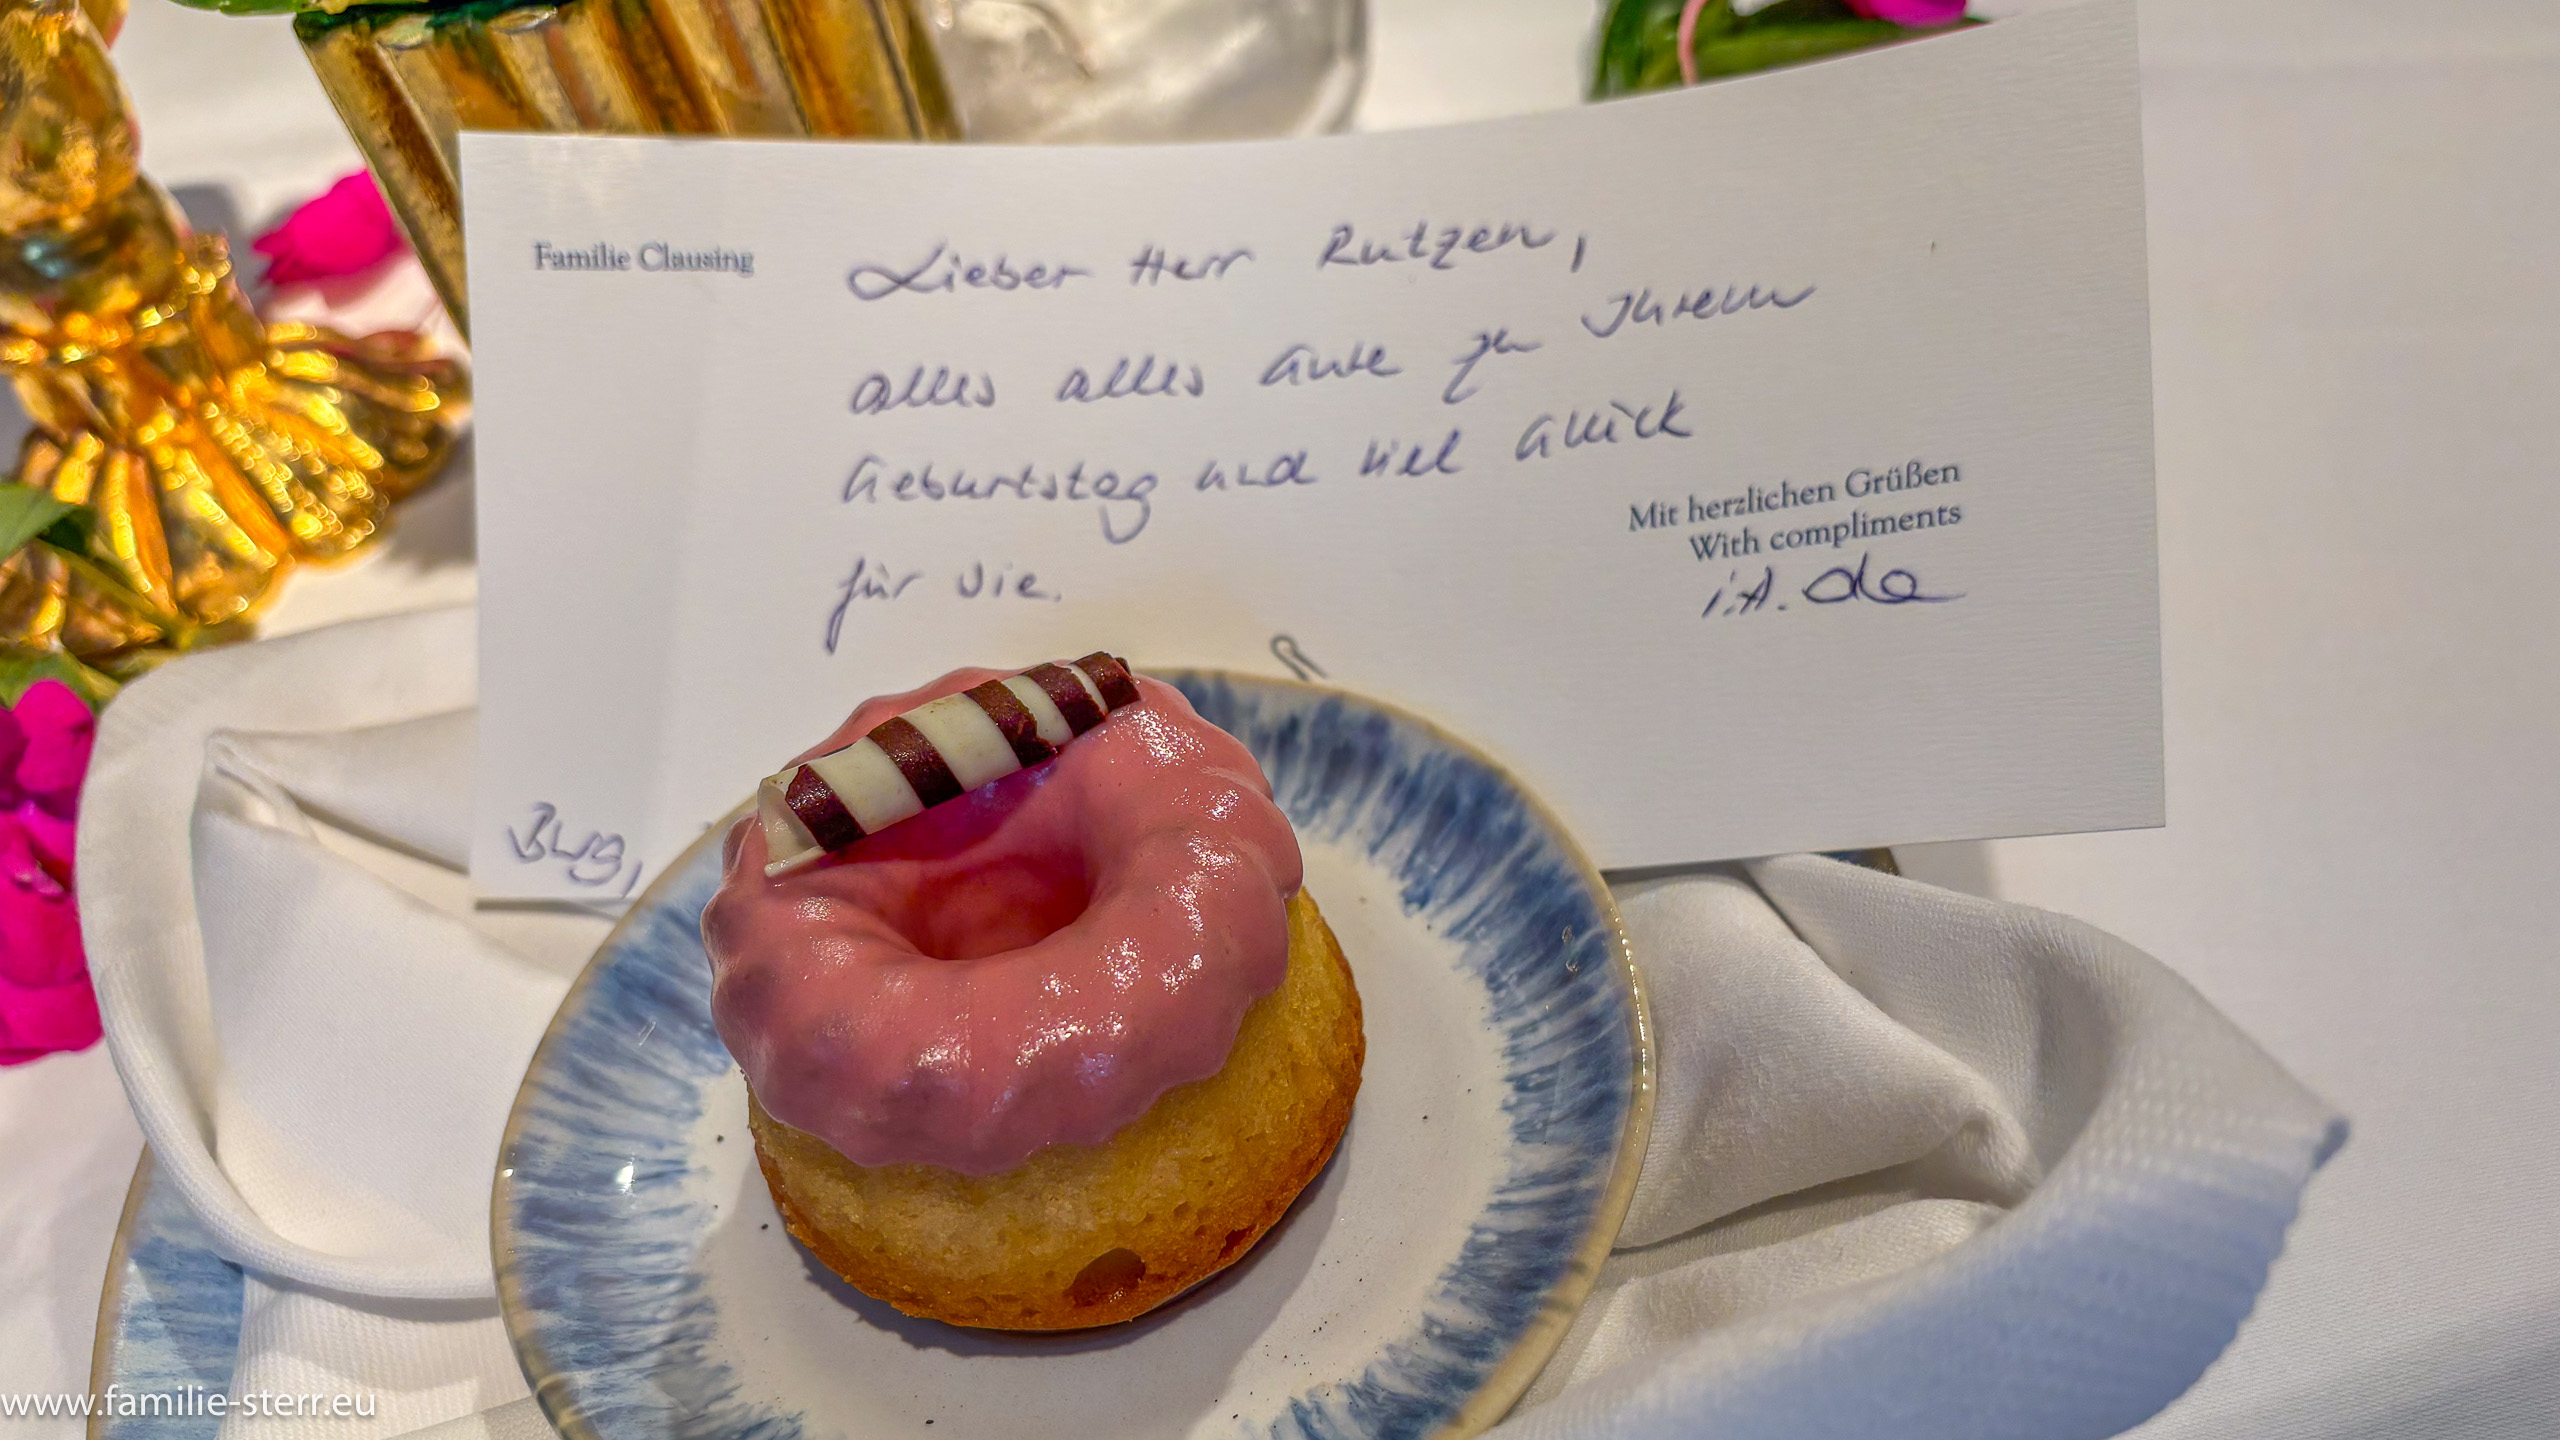 Familie Clausing
Lieber Herr Rutzen,
alles alles Gute zu Ihrem
Geburtstag und viel Glück
für Sie.
Mit herzlichen Grüßen
With compliments
i.A.
www.familie-sterr.eu